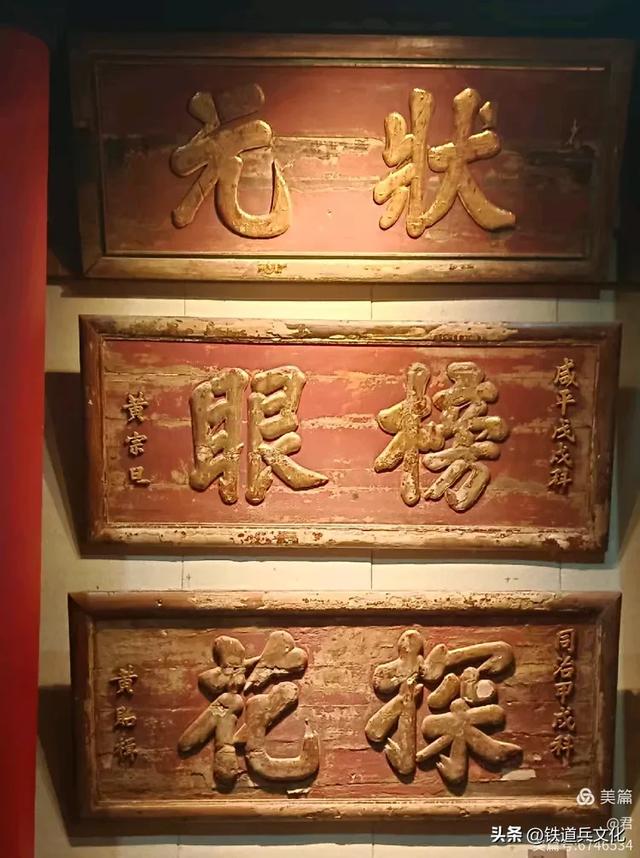 狀元
咸平戊戌科
榜眼
黄宗旦
同治甲戌科
探花
黄貽楫
美篇
@君
头条 @铁道兵文化
美篇号:6746534